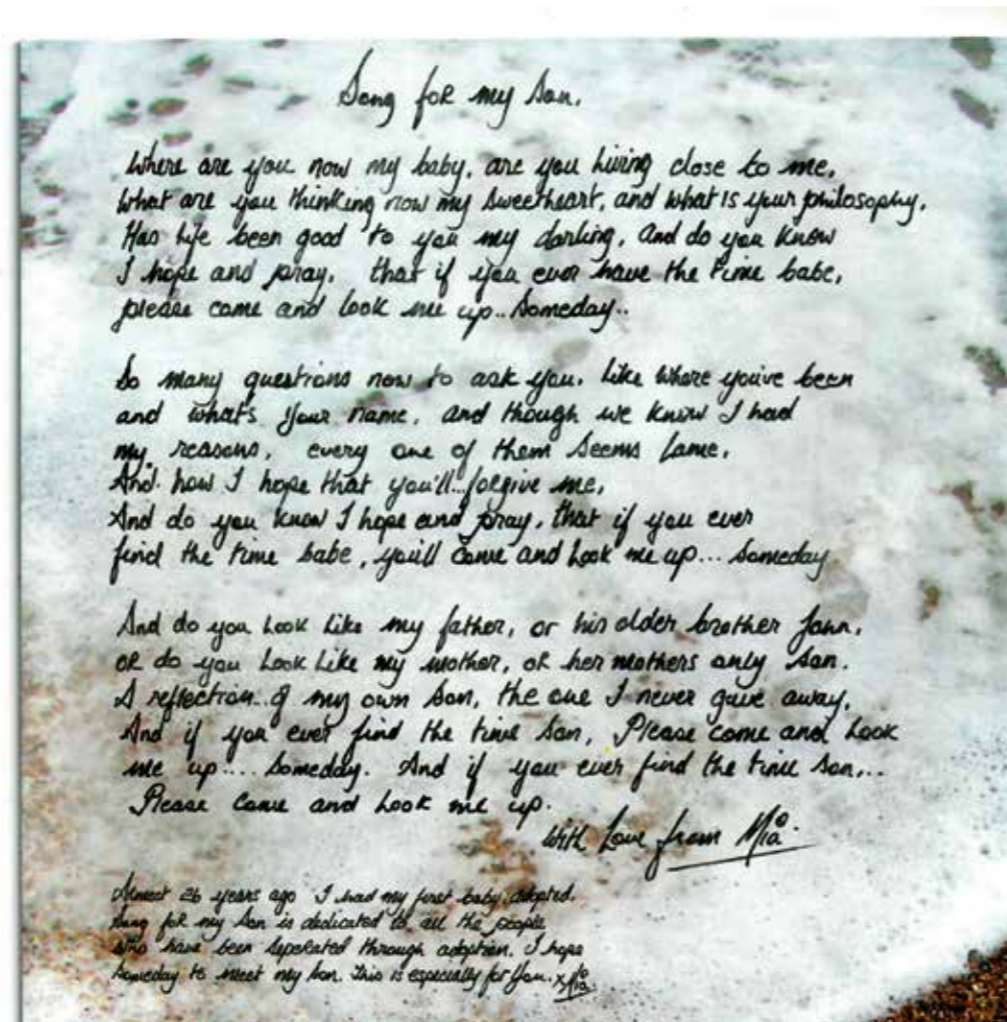 Song for my Son.
Where are you now my baby, are you living close to me,
What are you thinking now my sweetheart, and what is your philosophy,
Has life been good to you my darling, and do you know
I hope and pray, that if you ever have the time babe,
please come and look me up.. Someday..
So many questions now to ask you, like where you've been
and what's your name, and though we know I had
my reasons, every one of them seems lame,
And how I hope that you'll...forgive me,
And do you know I hope and pray, that if you ever
find the time babe, you'll come and look me up... Someday
And do you look like my father, or his older brother John,
or do you look like my mother, or her mothers only son.
A reflection of my own son, the one I never gave away,
And if you ever find the time son, Please come and look
me up.... Someday. And if you ever find the time son,..
Please come and look me up.
With love from Mia.
Almost 26 years ago I had my first baby adopted.
Song for my Son is dedicated to all the people
who have been seperated through adoption. I hope
someday to meet my son. This is especially for you. x Mia